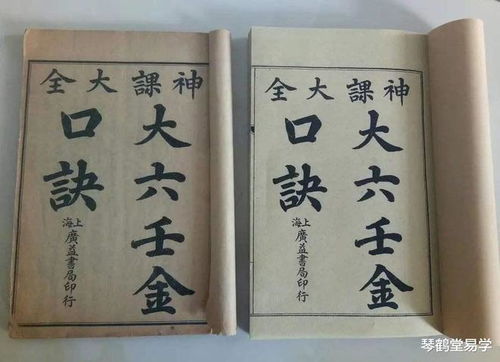 神課大全
大六壬金
口訣
上海廣益書局印行
神課大全
大六壬金
口訣
上海廣益書局印行
琴鹤堂易学